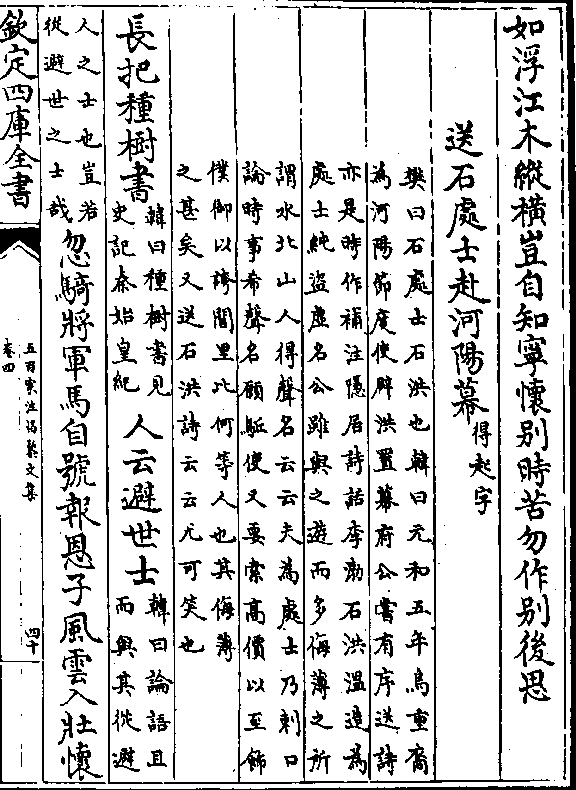 如浮江木縱橫豈自知寧懷别時苦勿作别後思
送石處士赴河陽幕得起字
樊曰石處士石洪也韓曰元和五年烏重裔
為河陽節度使辟洪置幕府公嘗有序送詩
亦是時作補注隱居詩話李渤石洪溫造為
處士純盜虛名公雖與之遊而多侮薄之所
謂水北山人得聲名云云夫為處士乃刺口
論時事希聲名願驅使又要索高價以至飾
僕御以誇閭里此何等人也其侮薄
之甚矣又送石洪詩云云尤可笑也
長把種樹書韓曰種樹書見史記秦始皇紀人云避世士韓曰論語且而與其從避
人之士也豈若從避世之士哉忽騎將軍馬自號報恩子風雲入壯懷
欽定四庫全書
五百家注昌黎文集
卷四
四十